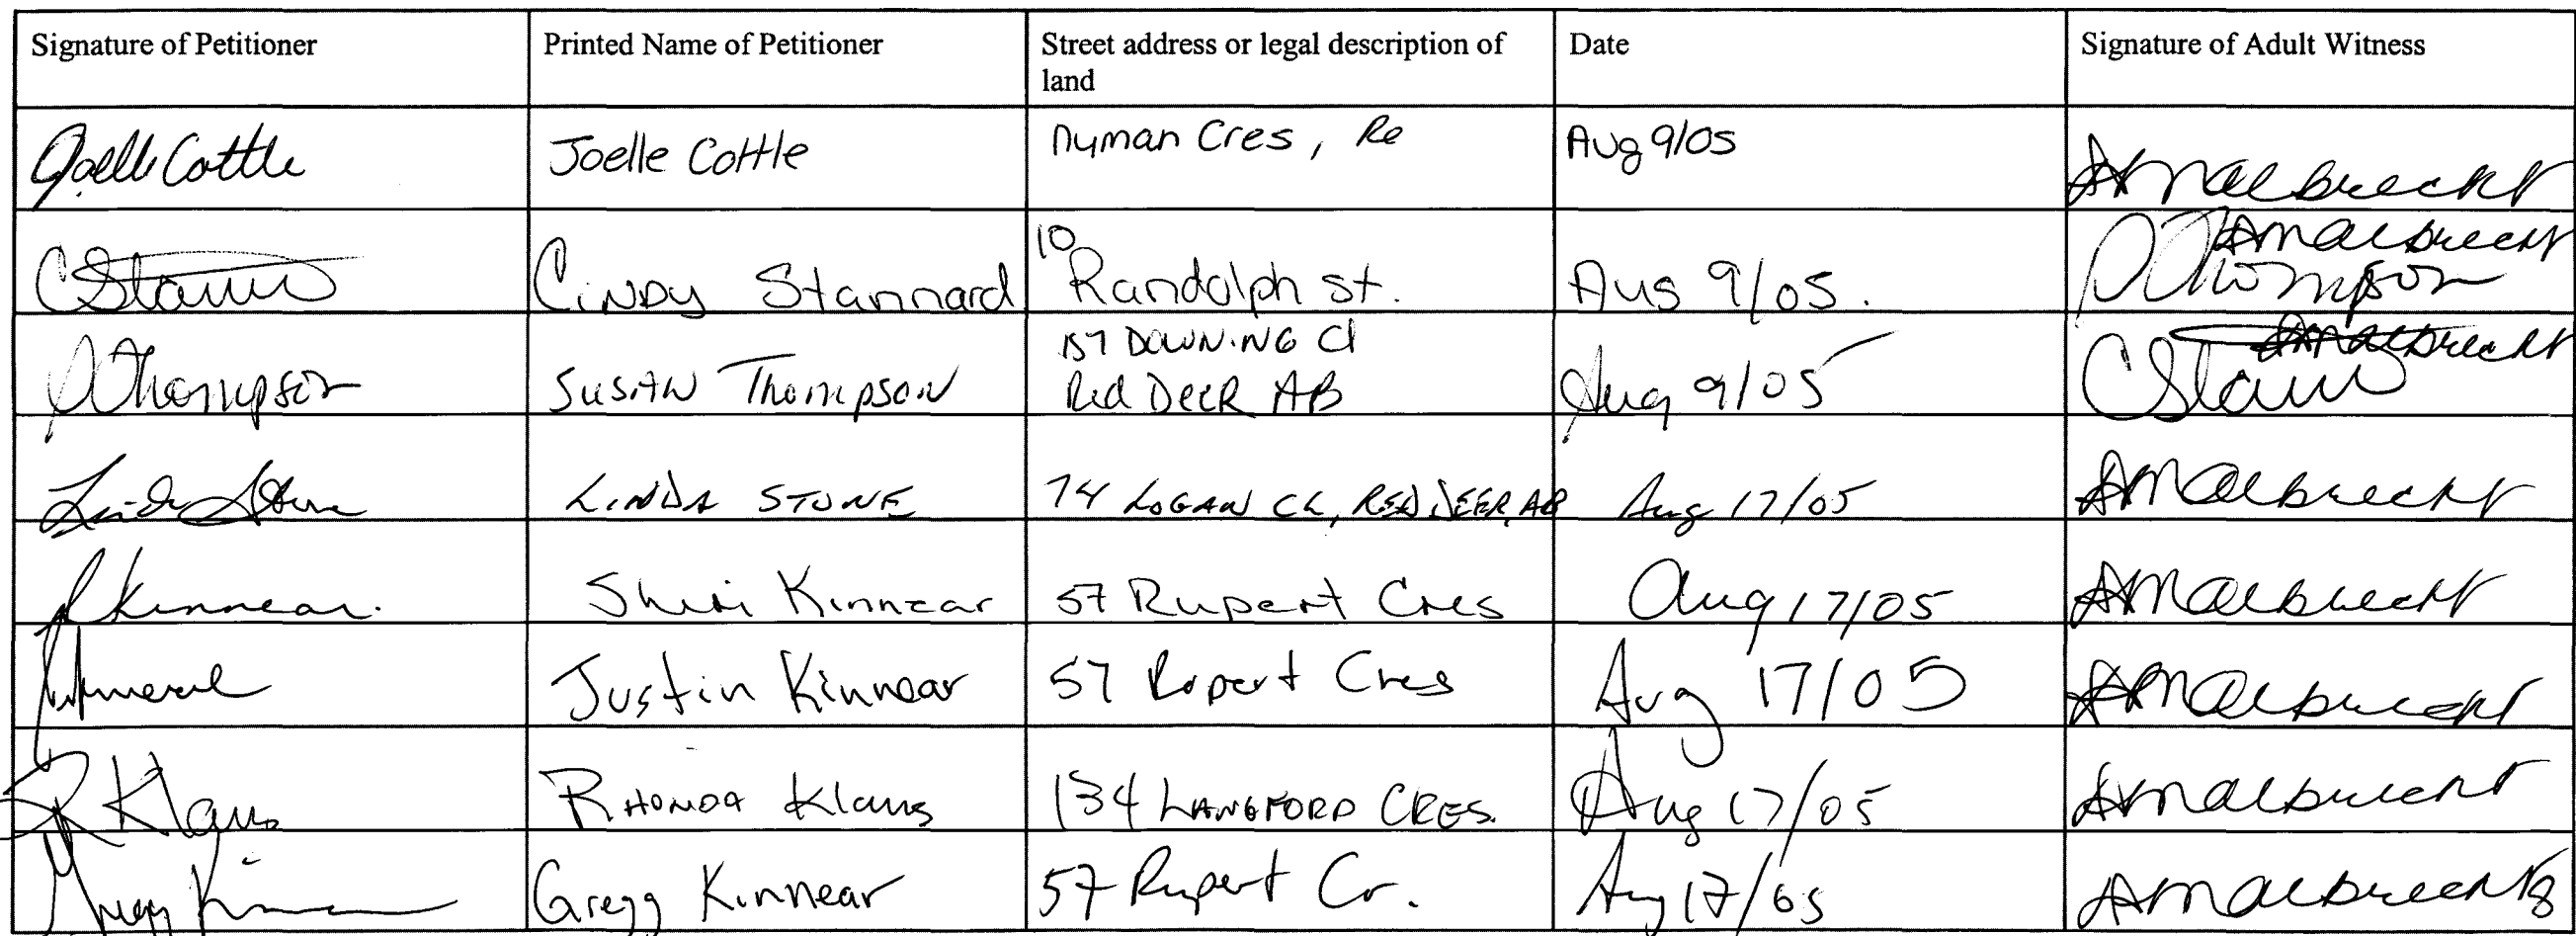 Signature of Petitioner
Printed Name of Petitioner
Street address or legal description of
land
Date
Signature of Adult Witness
Joelle Cottle
Joelle Cottle
Nyman Cres, Re
Aug 9/05
AMalbrecht
C Stann
Cindy Stannard
10
Randolph st.
Aug 9/05.
AMalbrecht
S Thompson
S Thompson
Susan Thompson
157 Downing Cl
Red Deer AB
Aug 9/05
AMalbrecht
C Stann
Linda Stone
Linda Stone
74 Logan Cl, Red Deer, AB
Aug 17/05
AMalbrecht
S Kinnear.
Shiri Kinnear
57 Rupert Cres
Aug 17/05
AMalbrecht
Justin Kinnear
57 Rupert Cres
Aug 17/05
AMalbrecht
R Klaus
Rhonda Klaus
134 Langford Cres.
Aug 17/05
AMalbrecht
Gregg Kinnear
57 Rupert Cr.
Aug 17/05
AMalbrecht
8